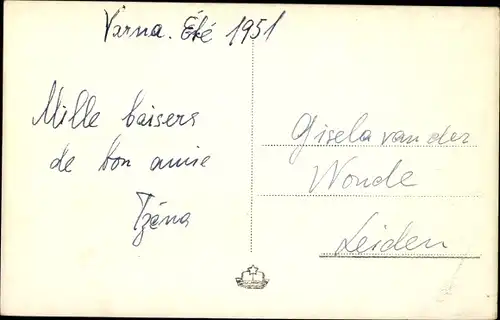 Varna. Été 1951
Mille baisers
de bon amie
Tzéna
Gisela van der
Wonde
Leiden